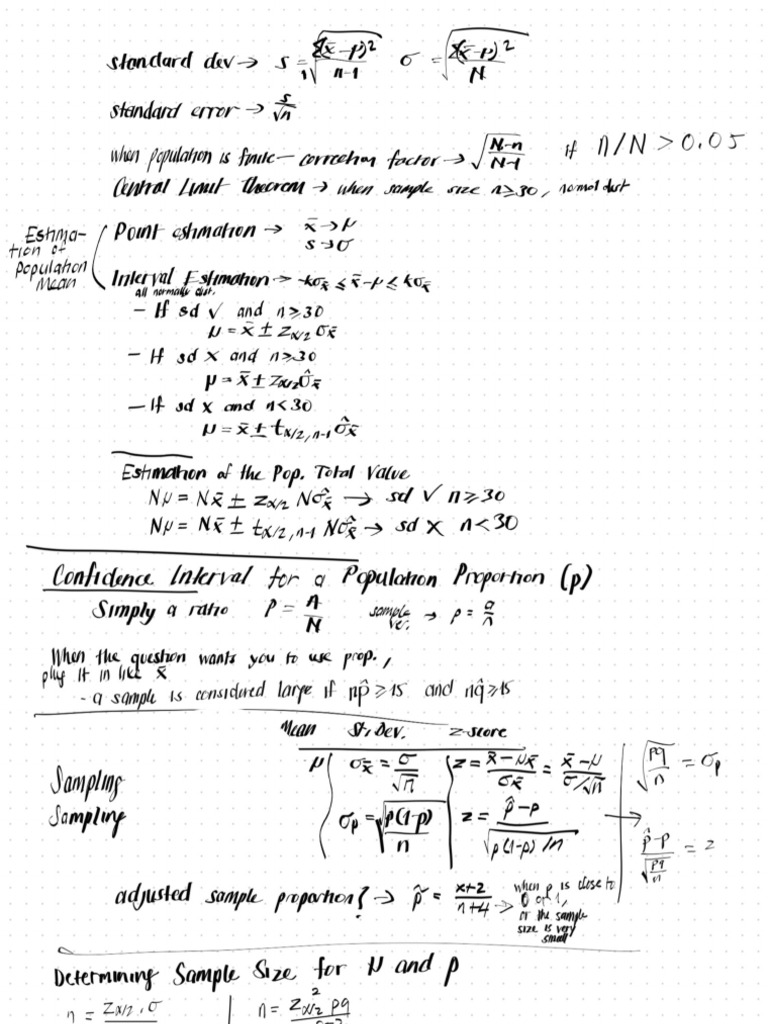 standard dev → s = √(Σ(x̄-μ)²/n-1)   σ = √(Σ(x̄-μ)²/N)
standard error → s/√n
when population is finite - correction factor → √(N-n/N-1) if n/N > 0.05
Central Limit Theorem → when sample size n≥30, normal dist
Estima-
tion of
Population
Mean
Point estimation → x̄→μ
s→σ
Interval Estimation → -kσx̄ ≤ x̄-μ ≤ kσx̄
all normally dist.
- If sd ✓ and n≥30
μ = x̄ ± Zα/2 σx̄
- If sd X and n≥30
μ = x̄ ± Zα/2 σ̂x̄
- If sd X and n<30
μ = x̄ ± tα/2, n-1 σ̂x̄
Estimation of the Pop. Total Value
Nμ = Nx̄ ± Zα/2 Nσ̂x̄ → sd ✓ n≥30
Nμ = Nx̄ ± tα/2, n-1 Nσ̂x̄ → sd X n<30
Confidence Interval for a Population Proportion (p)
Simply a ratio P = n/N   sample ver. → p = a/n
When the question wants you to use prop.,
plug it in like x̄
- a sample is considered large if np̂≥15 and nq̂≥15
Mean St. Dev. z-score
Sampling
μ   σx̄ = σ/√n   z = x̄-μx̄/σx̄ = x̄-μ/σ/√n   √(pq/n) = σp
Sampling
σp = √(p(1-p)/n)   z = p̂-p/√(p(1-p)/n) →   p̂-p/√(pq/n) = z
adjusted sample proportion? → p̃ = x+2/n+4 → when p is close to
0 or 1,
or the sample
size is very
small
Determining Sample Size for μ and p
n = Zα/2 · σ   n = Z²α/2 pq